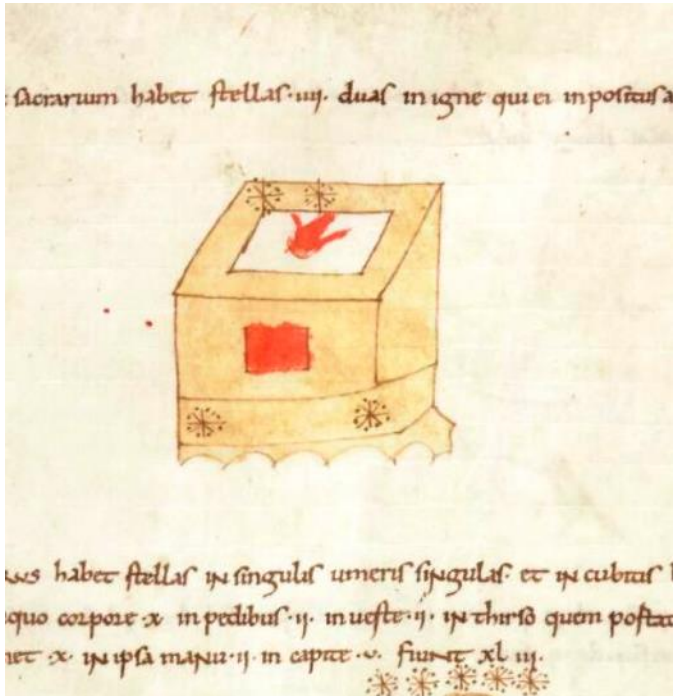 sacrarium habet stellas·iiii· duas in igne qui ei inpositus a
habet stellas in singulis umeris singulas· et in cubitis
quo corpore ·x· in pedibus ·ii· in ueste ·ii· in thirso quem
·x· in ipsa manu ·ii· in capite ·v· fiunt xl iii·